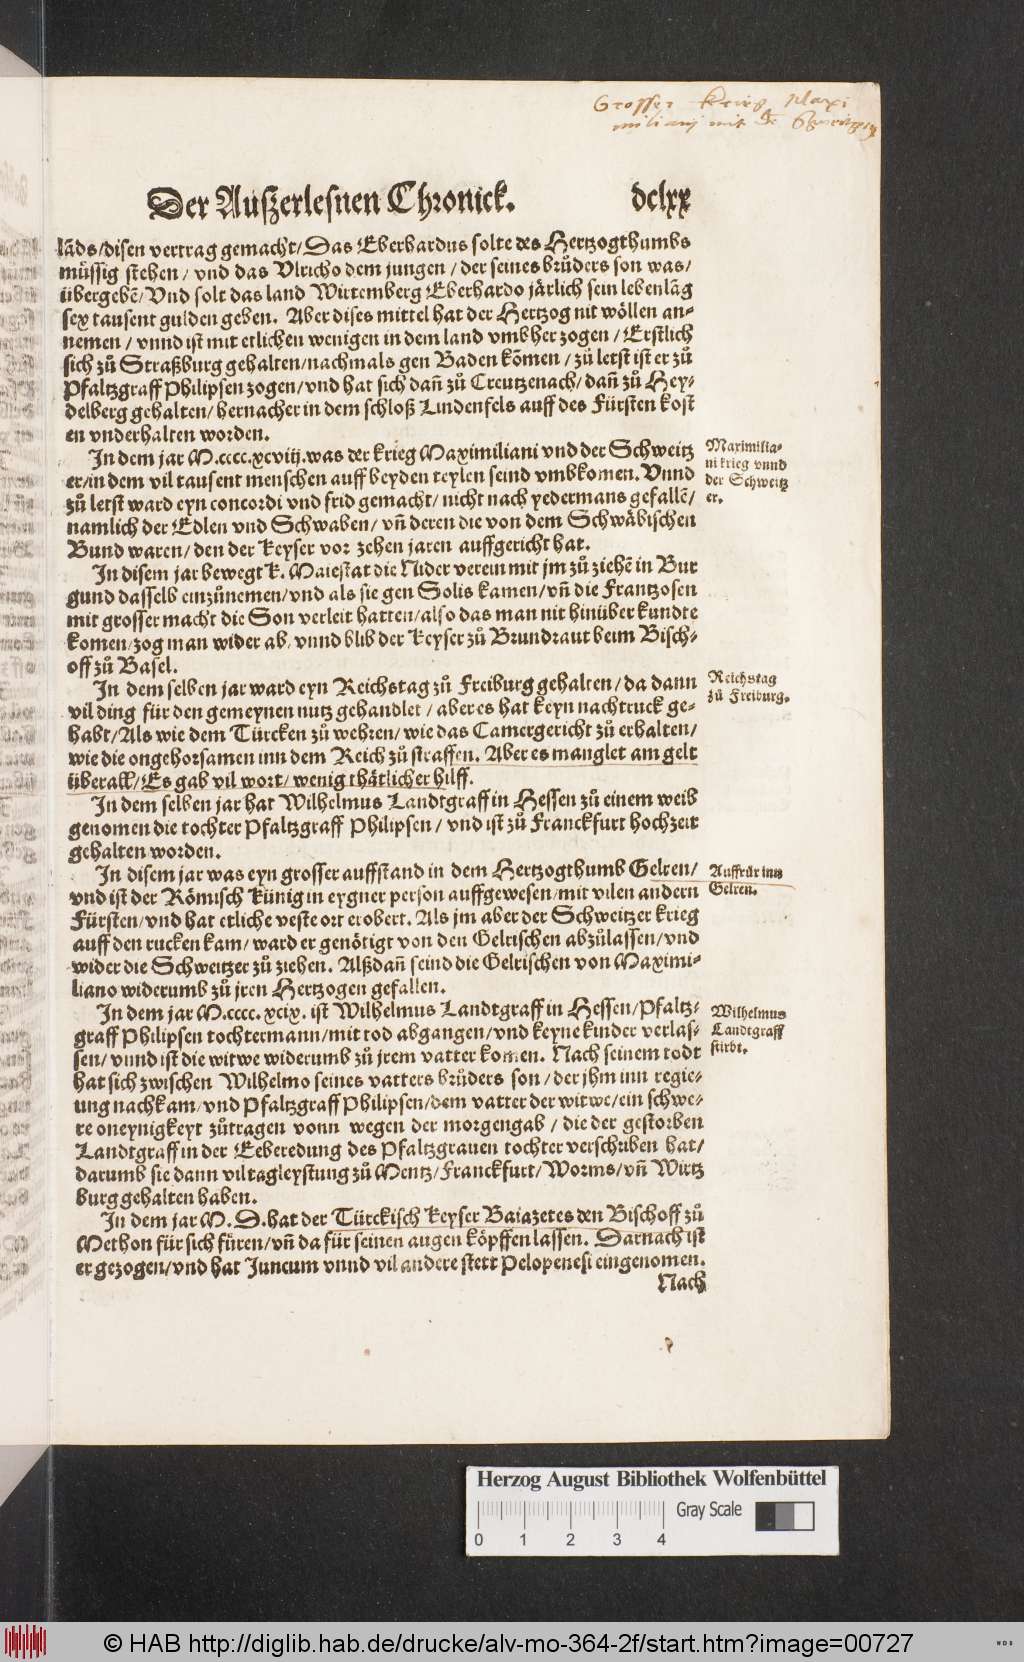 Grosser krieg Maxi
miliani mit dē Schweitzern
Der Außerlesnen Chronick. dclxx
lāds/disen vertrag gemacht/Das Eberhardus solte des Hertzogthumbs
müssig stehen/ vnd das Vlricho dem jungen/ der seines brůders son was/
übergebē/Vnd solt das land Wirtemberg Eberhardo järlich sein lebenlāg
sex tausent gulden geben. Aber dises mittel hat der Hertzog nit wöllen an-
nemen/ vnnd ist mit etlichen wenigen in dem land vmbher zogen/ Erstlich
sich zů Straßburg gehalten/nachmals gen Baden kōmen/ zů letst ist er zů
Pfaltzgraff Philipsen zogen/vnd hat sich dañ zů Creutzenach/dañ zů Hey-
delberg gehalten/ hernacher in dem schloß Lindenfels auff des Fürsten kost
en vnderhalten worden.
In dem jar M.cccc.xcviij.was der krieg Maximiliani vnd der Schweitz
er/in dem vil tausent menschen auff beyden teylen seind vmbkomen. Vnnd
zů letst ward eyn concordi vnd frid gemacht/ nicht nach yedermans gefallē/
namlich der Edlen vnd Schwaben/ vñ deren die von dem Schwäbischen
Bund waren/ den der Keyser vor zehen jaren auffgericht hat.
Maximilia-
ni krieg vnnd
der Schweitz
er.
In disem jar bewegt k. Maiestat die Nider verein mit jm zů ziehē in Bur
gund dasselb einzůnemen/vnd als sie gen Solis kamen/vñ die Frantzosen
mit grosser macht die Son verleit hatten/also das man nit hinüber kundte
komen/zog man wider ab/ vnnd blib der Keyser zů Brundraut beim Bisch-
off zů Basel.
In dem selben jar ward eyn Reichstag zů Freiburg gehalten/ da dann
vil ding für den gemeynen nutz gehandlet/ aber es hat keyn nachtruck ge-
habt/Als wie dem Türcken zů wehren/ wie das Camergericht zů erhalten/
wie die ongehorsamen inn dem Reich zů straffen. Aber es manglet am gelt
überall/Es gab vil wort/ wenig thätlicher hilff.
Reichstag
zů Freiburg.
In dem selben jar hat Wilhelmus Landtgraff in Hessen zů einem weib
genomen die tochter Pfaltzgraff Philipsen/ vnd ist zů Franckfurt hochzeit
gehalten worden.
In disem jar was eyn grosser auffstand in dem Hertzogthumb Gelren/
vnd ist der Römisch Künig in eygner person auffgewesen/mit vilen andern
Fürsten/vnd hat etliche veste ort erobert. Als jm aber der Schweitzer krieg
auff den rucken kam/ ward er genötigt von den Gelrischen abzůlassen/vnd
wider die Schweitzer zů ziehen. Alßdañ seind die Gelrischen von Maximi-
liano widerumb zů jren Hertzogen gefallen.
Auffrůr inn
Gelren.
In dem jar M.cccc. xcix. ist Wilhelmus Landtgraff in Hessen/Pfaltz-
graff Philipsen tochtermann/mit tod abgangen/vnd keyne kinder verlas-
sen/ vnnd ist die witwe widerumb zů jrem vatter komen. Nach seinem todt
hat sich zwischen Wilhelmo seines vatters brůders son/ der jhm inn regie-
ung nachkam/vnd Pfaltzgraff Philipsen/dem vatter der witwe/ein schwe-
re oneynigkeyt zůtragen vonn wegen der morgengab/ die der gestorben
Landtgraff in der Eeberedung des Pfaltzgrauen tochter verschriben hat/
darumb sie dann vil tagleystung zů Mentz/Franckfurt/Worms/vñ Wirtz
burg gehalten haben.
Wilhelmus
Landtgraff
stirbt.
In dem jar M. D. hat der Türckisch Keyser Baiazetes den Bischoff zů
Methon für sich füren/vñ da für seinen augen köpffen lassen. Darnach ist
er gezogen/vnd hat Juncum vnnd vil andere stett Pelopenesi eingenomen.
Nach
Herzog August Bibliothek Wolfenbüttel
0 1 2 3 4
Gray Scale
© HAB http://diglib.hab.de/drucke/alv-mo-364-2f/start.htm?image=00727